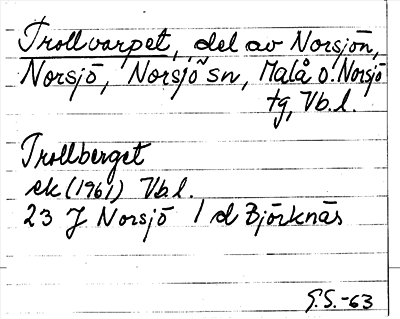 Trollvarpet, del av Norsjön,
Norsjö, Norsjö sn, Malå o. Norsjö
tg, Vb. l.
Trollberget
ek (1961) Vb. l.
23 J Norsjö 1 d Björknäs
G.S. -63